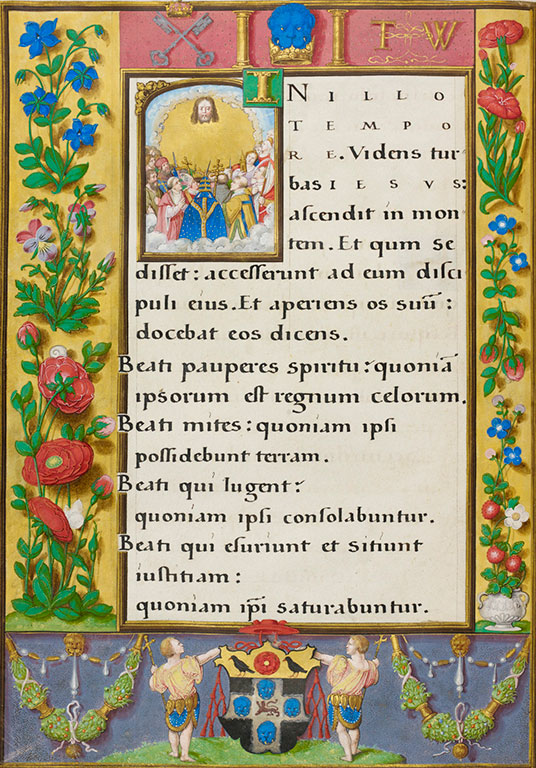 T W
INILLO
TEMPO
RE. Videns tur
bas IESVS:
ascendit in mon
tem. Et qum se
disset: accesserunt ad eum disci
puli eius. Et aperiens os suū:
docebat eos dicens.
Beati pauperes spiritu: quoniā
ipsorum est regnum celorum.
Beati mites: quoniam ipsi
possidebunt terram.
Beati qui lugent:
quoniam ipsi consolabuntur.
Beati qui esuriunt et sitiunt
iustitiam:
quoniam ip̄i saturabuntur.